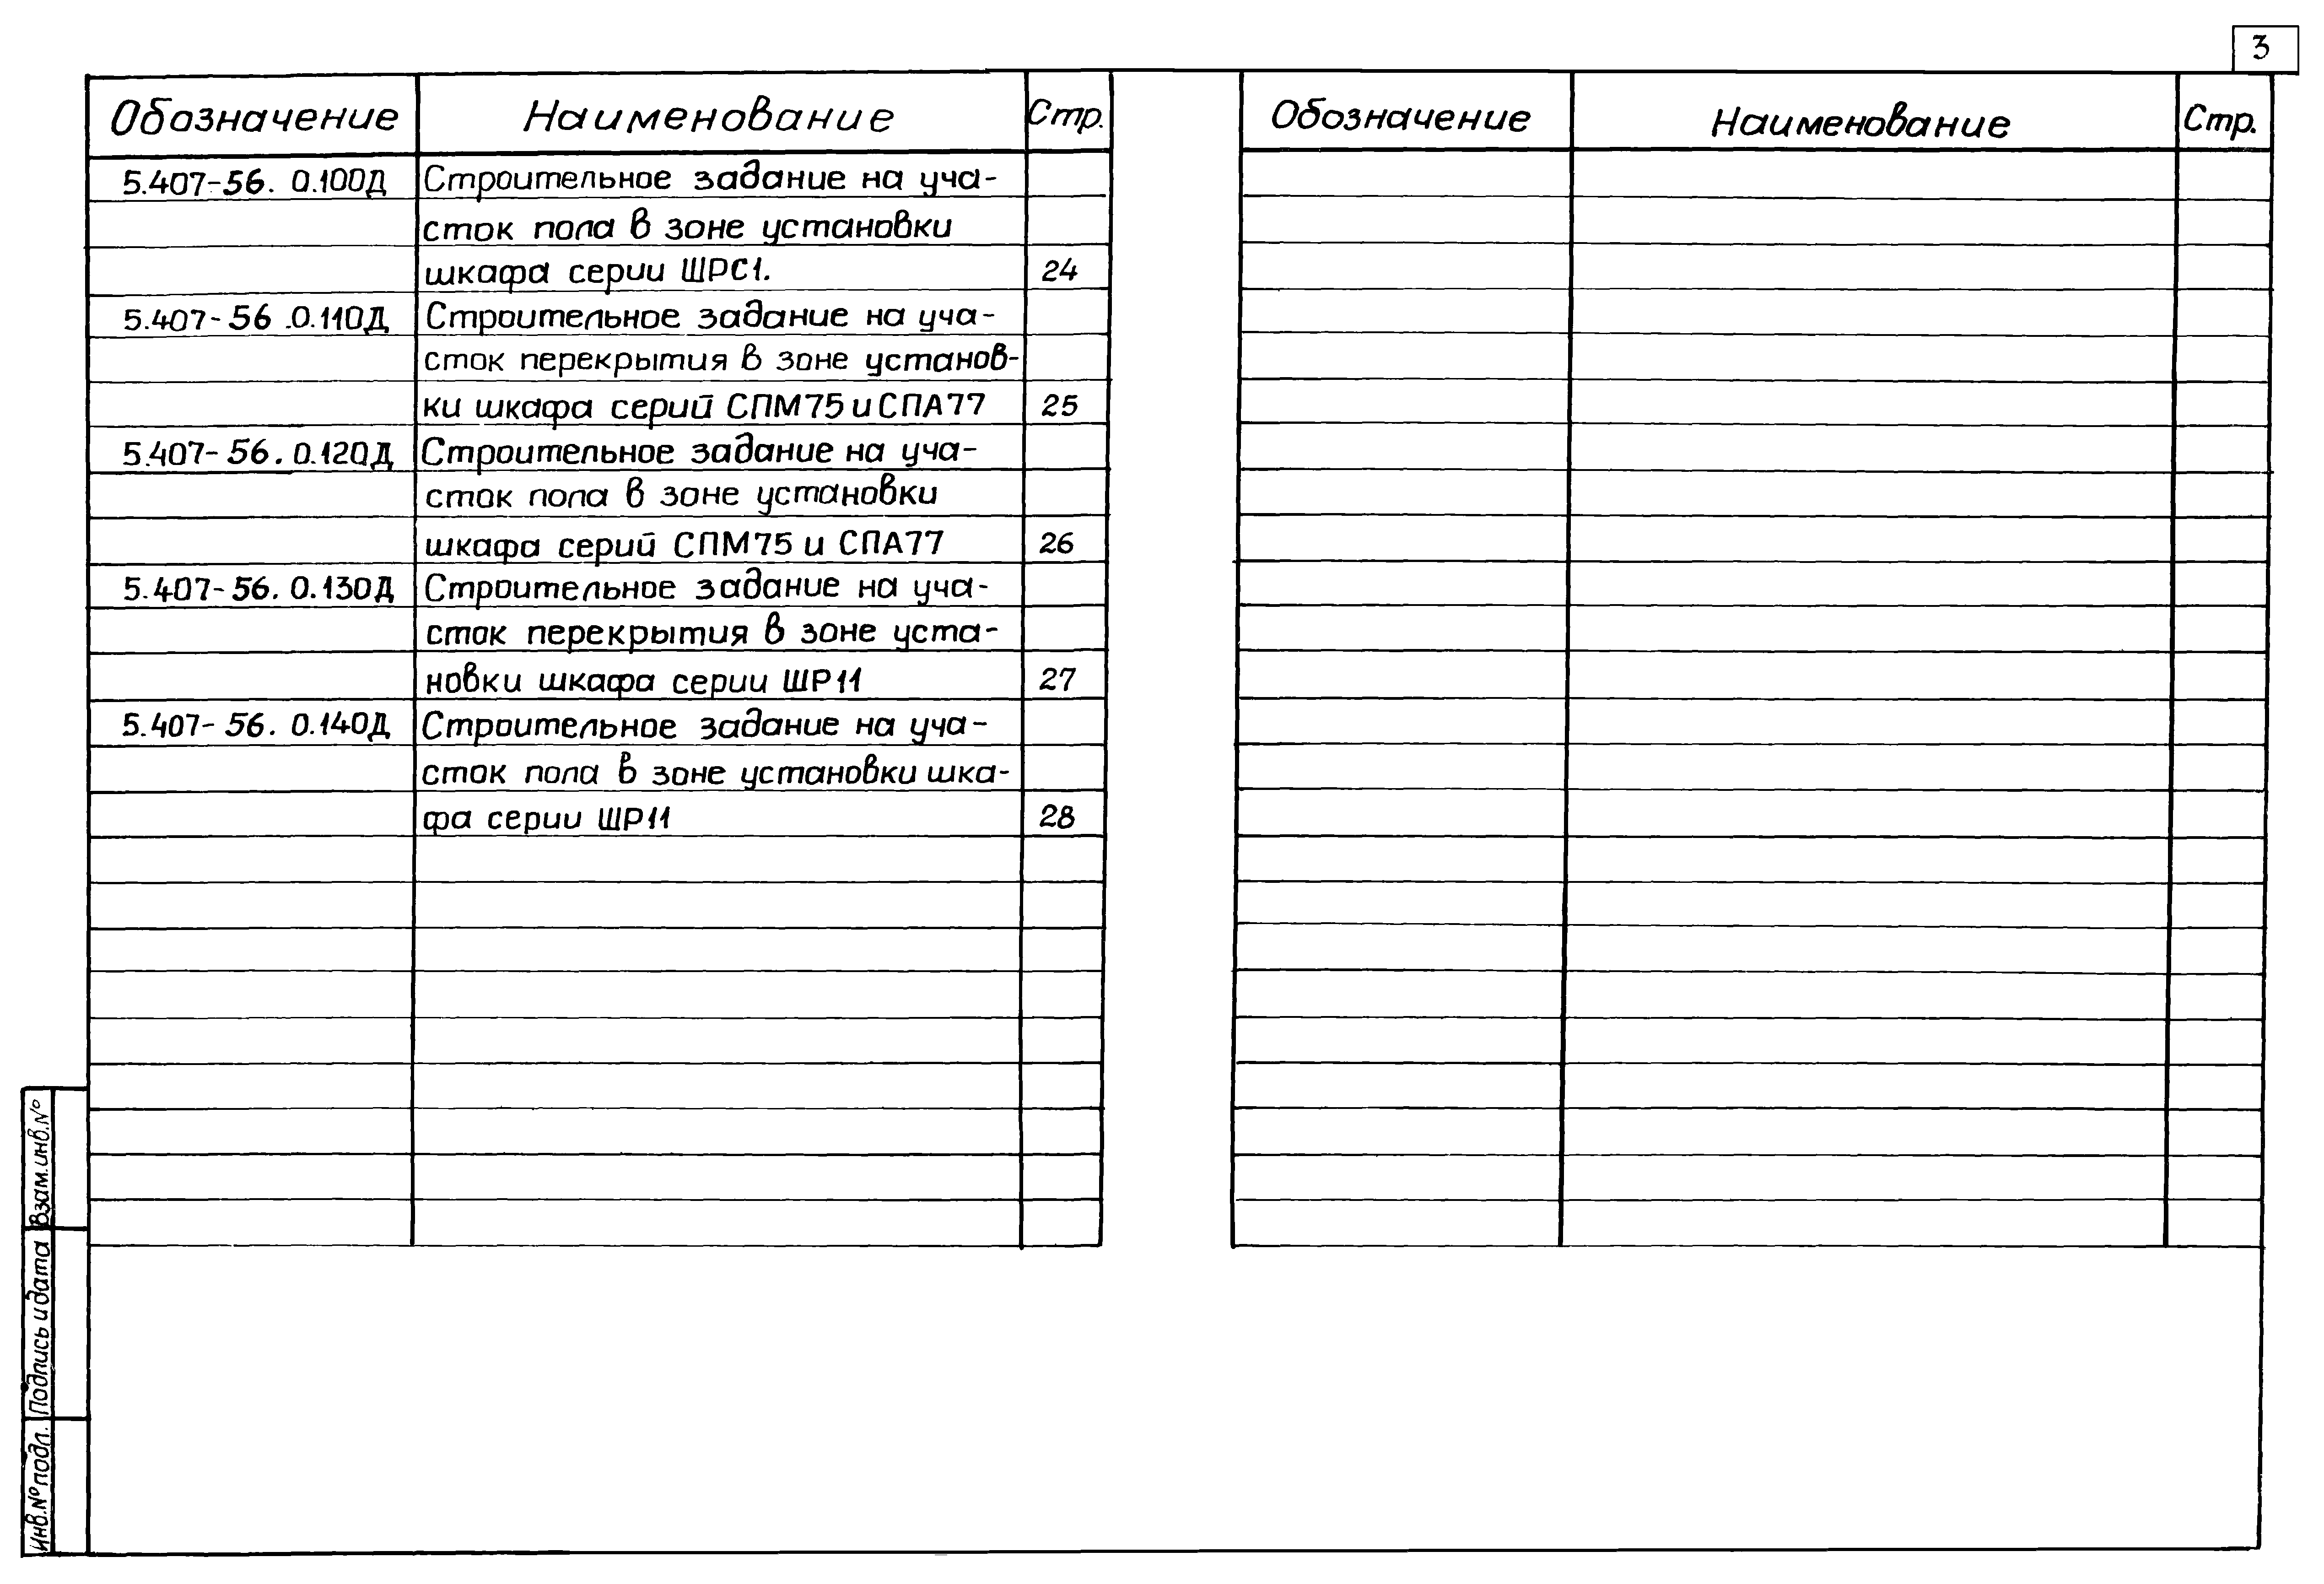 3
Обозначение Наименование Стр.
5.407-56. 0.100Д Строительное задание на уча-
сток пола в зоне установки
шкафа серии ШРС1. 24
5.407-56.0.110Д Строительное задание на уча-
сток перекрытия в зоне установ-
ки шкафа серий СПМ75 и СПА77 25
5.407-56. 0.120Д Строительное задание на уча-
сток пола в зоне установки
шкафа серий СПМ75 и СПА77 26
5.407-56. 0.130Д Строительное задание на уча-
сток перекрытия в зоне уста-
новки шкафа серии ШР11 27
5.407-56. 0.140Д Строительное задание на уча-
сток пола в зоне установки шка-
фа серии ШР11 28
Обозначение Наименование Стр.
Взам.инв.№
Подпись и дата
Инв.№ подл.